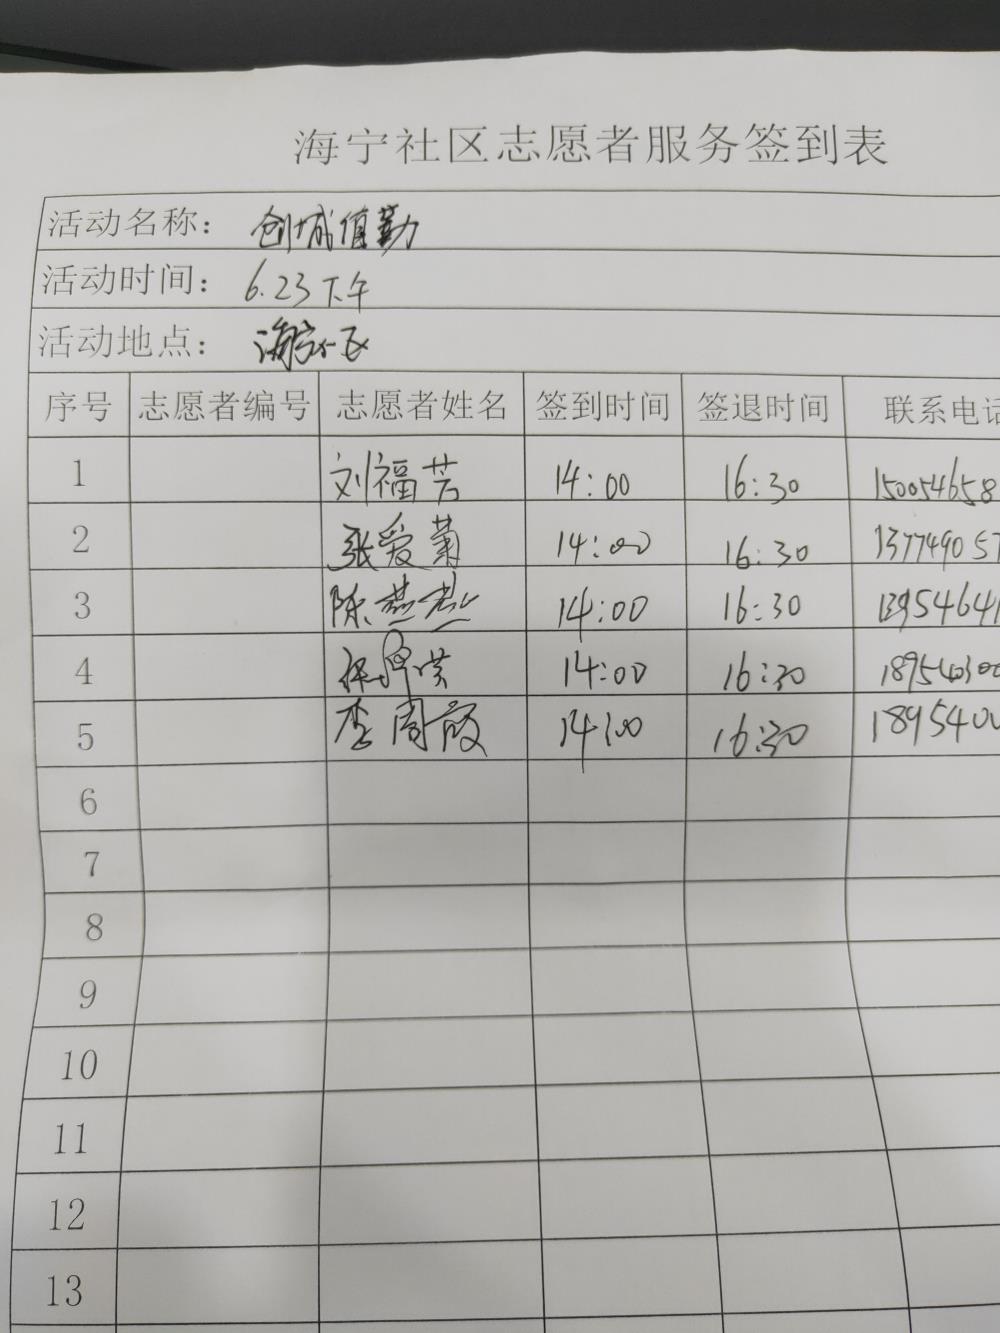 海宁社区志愿者服务签到表
活动名称： 创城值勤
活动时间： 6.23下午
活动地点： 海宁小区
序号 志愿者编号 志愿者姓名 签到时间 签退时间 联系电话
1 刘福芸 14:00 16:30 150054658
2 张爱菊 14:00 16:30 137749057
3 陈燕 14:00 16:30 13954641
4 14:00 16:30 189540300
5 李周霞 14:00 16:30 1895400
6
7
8
9
10
11
12
13